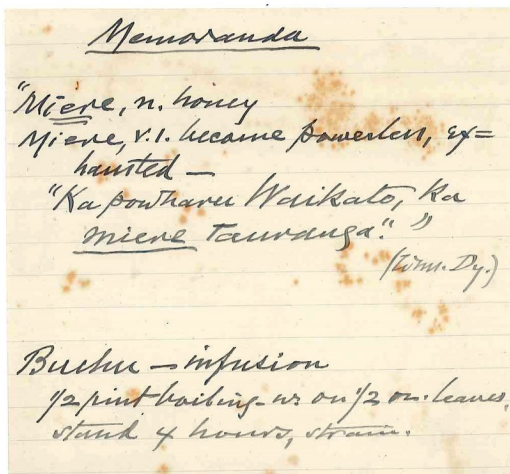 Memoranda
"Miere, n. honey
Miere, v.i. become powerless, ex=
hausted —
"Ka powharu Waikato, ka
miere Tauranga." "
(Wms. Dy.)
Buchu — infusion
1/2 pint boiling w. on 1/2 oz. leaves,
stand 4 hours, strain.